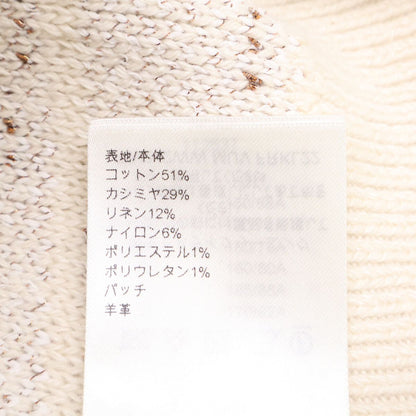 表地/本体
コットン51%
カシミヤ29%
リネン12%
ナイロン6%
ポリエステル1%
ポリウレタン1%
パッチ
羊革